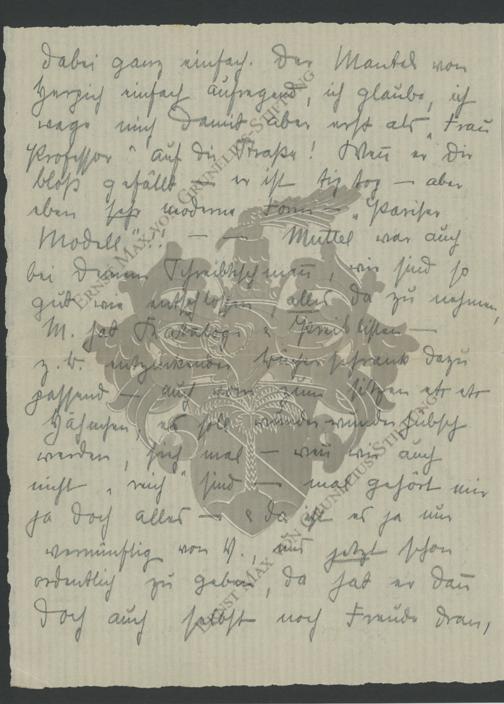 dabei ganz einfach. Der Mantel von
Herzich einfach aufregend, ich glaube, ich
wage mich damit aber erst als „Frau
Professor“ auf die Straße! Wenn er Dir
bloß gefällt – er ist tip top – aber
eben sehr moderne Form – „Pariser
Modell“!! – – Muttel war auch
bei Deinem Schreibtischmann, wir sind so
gut wie entschlossen, alles da zu nehmen,
M. hat Kataloge u. Preislisten –
z. B. entzückender Bücherschrank dazu
passend – auch zum sitzen etc etc
Hähnchen, es soll wunder wunderhübsch
werden, sieh mal – wenn wir auch
nicht „reich“ sind – mal gehört mir
ja doch alles – u. da ist es ja nur
vernünftig von V., uns jetzt schon
ordentlich zu geben, da hat er dann
doch auch selbst noch Freude dran,
ERNST MAX VON GRUNELIUS-STIFTUNG
ERNST MAX VON GRUNELIUS-STIFTUNG